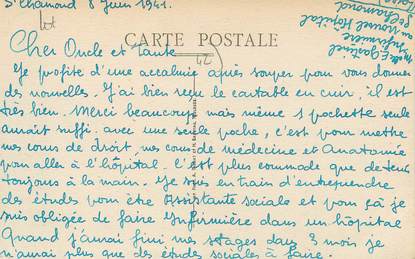 St Chamond 8 Juin 1941.
CARTE POSTALE
42
Cher Oncle et Tante
Je profite d'une accalmie après souper pour vous donner
des nouvelles. J'ai bien reçu le cartable en cuir, il est
très bien. Merci beaucoup mais même 1 pochette seule
aurait suffi. avec une seule poche, c'est pour mettre
mes cours de droit, mes cours de médecine et Anatomie
pour aller à l'hôpital. C'est plus commode que de tenir
toujours à la main. Je suis en train d'entreprendre
des études pour être Assistante sociale et pour çà je
suis obligée de faire Infirmière dans un hôpital
Quand j'aurai fini mes stages dans 3 mois je
n'aurai plus que des études sociales à faire.
Infirmière
au nouvel Hôpital
St Chamond
Loire